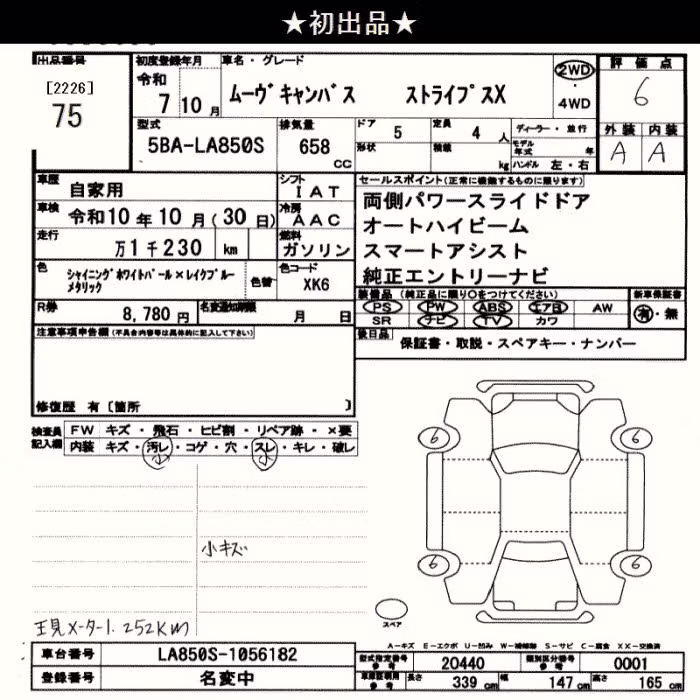 ★初出品★
出品番号
[2226]
75
初度登録年月
令和
7 10 月
車名・グレード
ムーヴキャンバス ストライプスX
2WD
・
4WD
評価点
6
外装 内装
A A
型式
5BA-LA850S
排気量
658
CC
ドア
5
形状
定員
4 人
積載
kg
ディーラー・並行
モデル年式 年
ハンドル 左・右
車歴
自家用
シフト
IAT
車検
令和10年10月(30日)
冷房
AAC
走行
万1千230 km
燃料
ガソリン
色
シャイニングホワイトパール×レイクブルー
メタリック
色替
色コード
XK6
R券
8,780円
名変通知期限
月 日
セールスポイント(正常に機能するものに限ります)
両側パワースライドドア
オートハイビーム
スマートアシスト
純正エントリーナビ
装備品 (純正品に限り○をつけてください)
PS PW ABS エアB AW
SR ナビ TV カワ
新車保証書
有・無
後日品
保証書・取説・スペアキー・ナンバー
注意事項申告欄(不具合内容等は具体的に記入して下さい)
修復歴 有〔箇所 〕
検査員
記入欄
FW キズ・飛石・ヒビ割・リペア跡・×要
内装 キズ・汚レ・コゲ・穴・スレ・キレ・破レ
小 小
小キズ
現メーター1.252KM
6 6
6 6
スペア
A-キズ E-エクボ U-凹み W-補修跡 S-サビ C-腐食 XX-交換済
車台番号
LA850S-1056182
登録番号
名変中
型式指定番号
参考
20440
類別区分番号
参考
0001
車庫証明用
参考
長さ 339 cm 幅 147 cm 高さ 165 cm